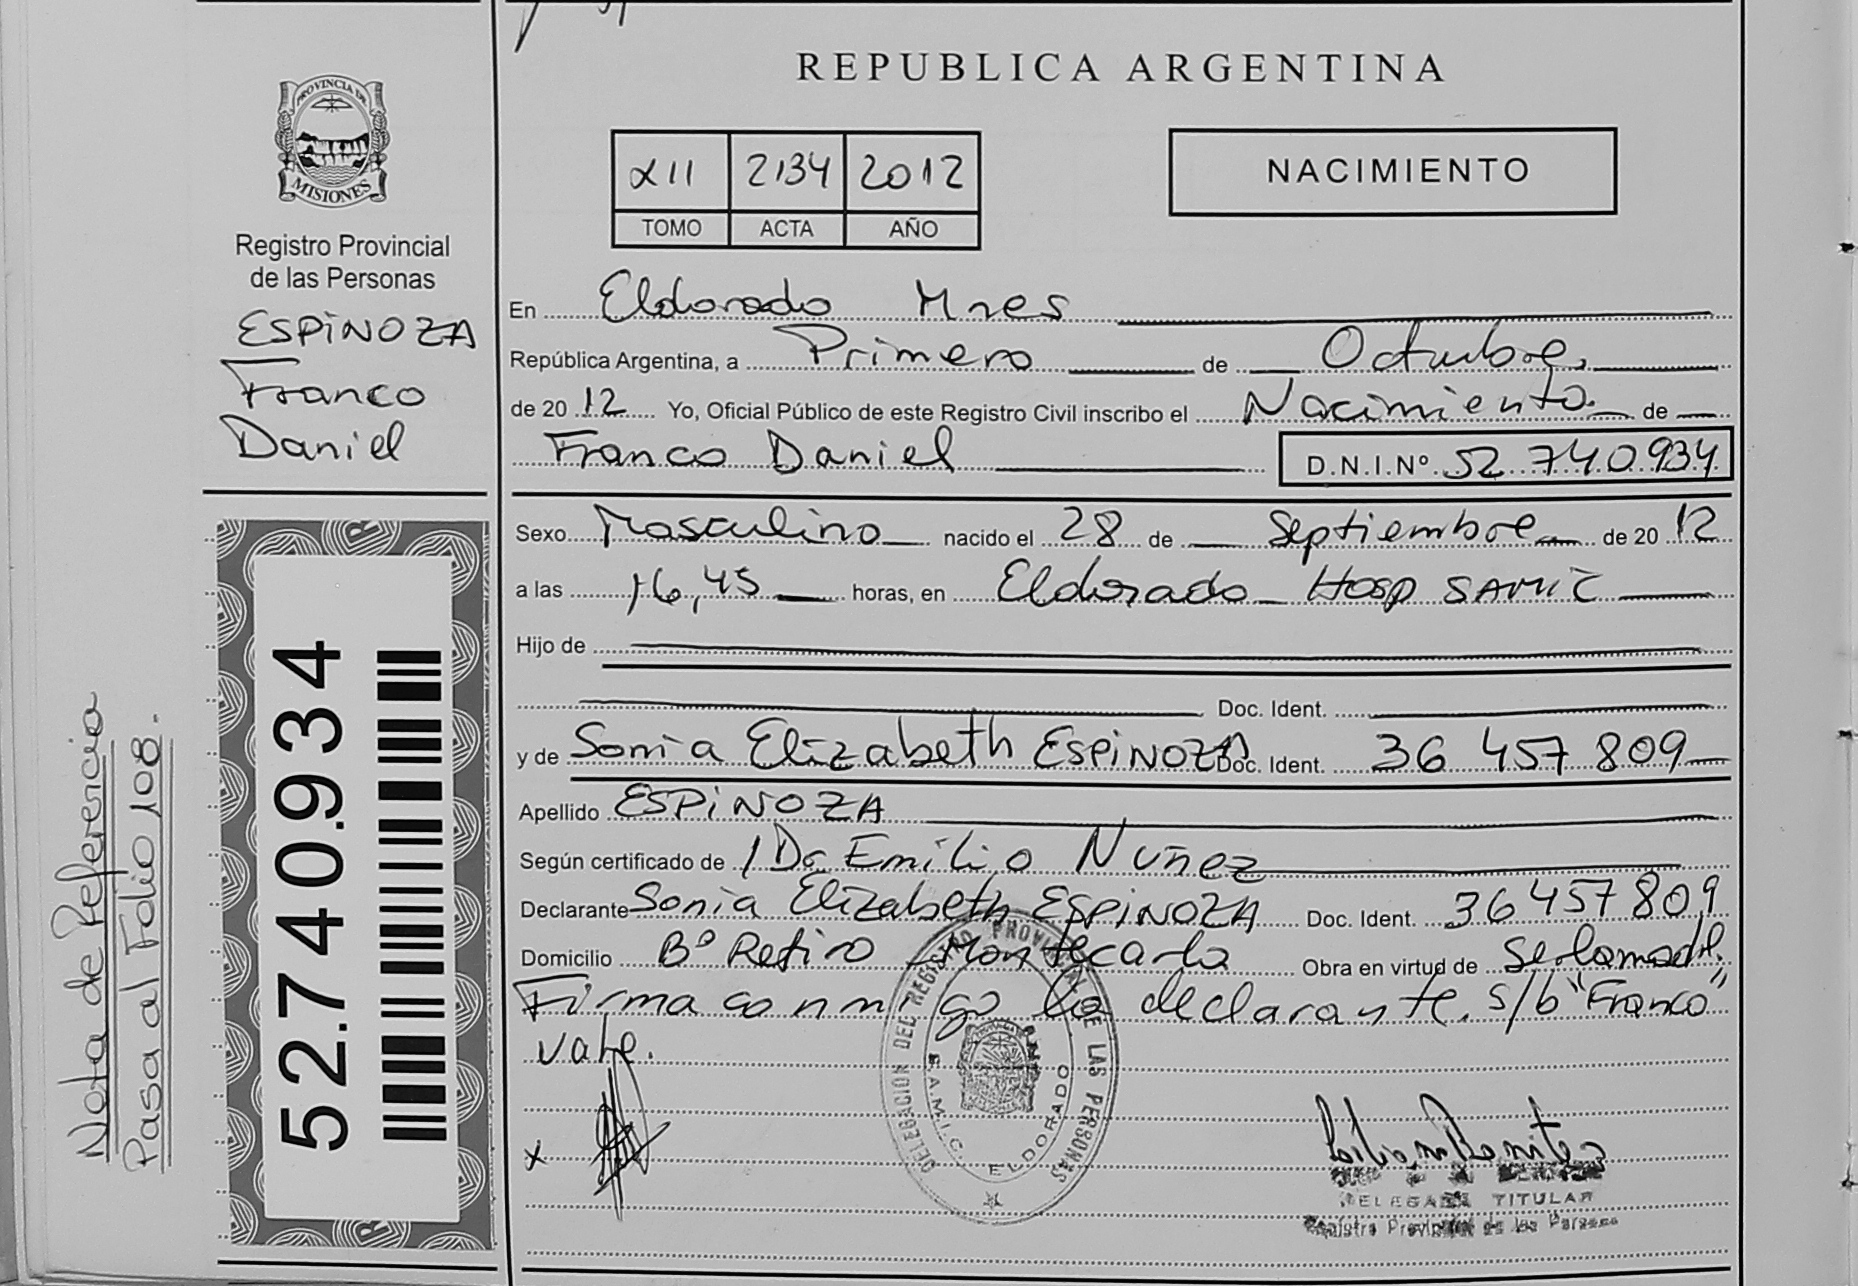 REPUBLICA ARGENTINA
PROVINCIA DE
MISIONES
Registro Provincial
de las Personas
ESPINOZA
Franco
Daniel
52.740.934
Nota de Referencia
Pasa al Folio 108.
XII 2134 2012
TOMO ACTA AÑO
NACIMIENTO
En Eldorado Mnes
República Argentina, a Primero de Octubre
de 20 12 Yo, Oficial Público de este Registro Civil inscribo el Nacimiento de
Franco Daniel D.N.I.Nº 52 740.934
Sexo Masculino nacido el 28 de Septiembre de 20 12
a las 16,45 horas, en Eldorado Hosp SAMIC
Hijo de
Doc. Ident.
y de Sonia Elizabeth ESPINOZA Doc. Ident. 36 457 809
Apellido ESPINOZA
Según certificado de Emilio Nuñez
Declarante Sonia Elizabeth ESPINOZA Doc. Ident. 36 457 809
Domicilio Bº Retiro Montecarlo Obra en virtud de
Firma conmigo la declarante. s/b "Franco"
vale.
x
DELEGACION DEL REGISTRO PROVINCIAL DE LAS PERSONAS
S.A.M.I.C. ELDORADO
DELEGADA TITULAR
Registro Provincial de las Personas